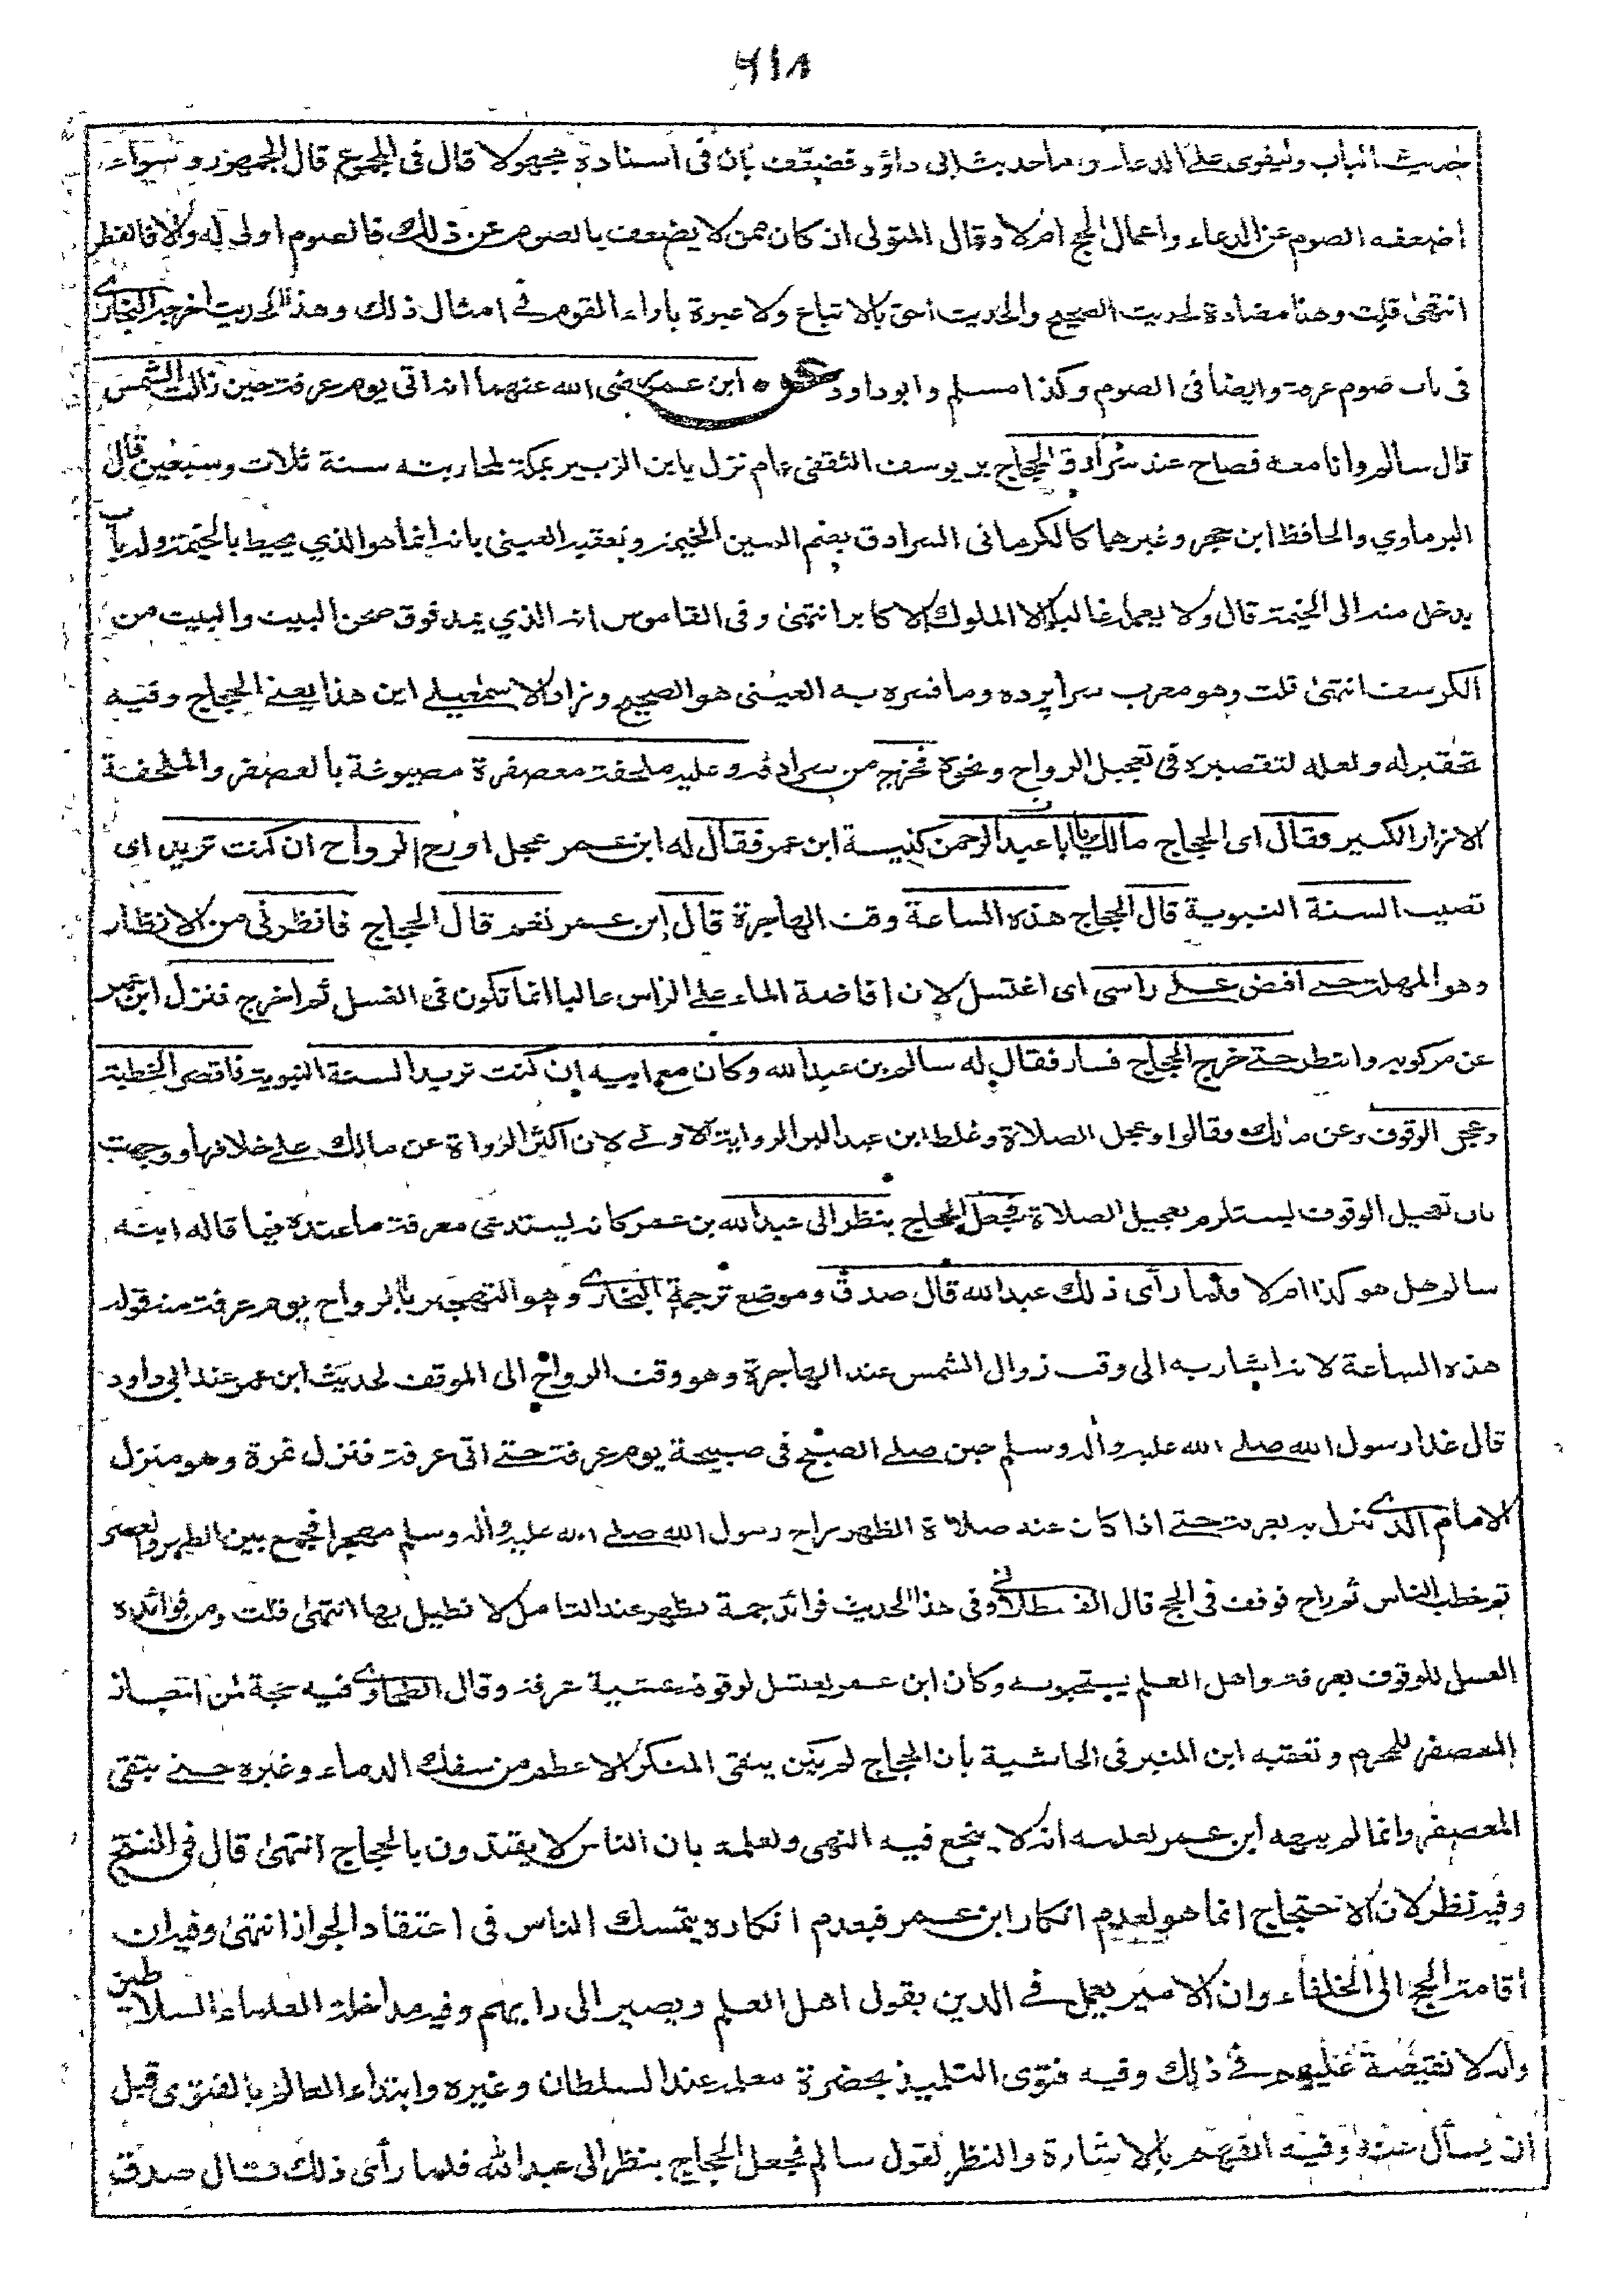 ٦١٨
حديث الباب وليقوى على الدعاء وما حديث ابى داؤد فضعف بان فى اسناده مجهولا قال فى المجموع قال الجمهور وسواء
اضعفه الصوم عن الدعاء واعمال الحج ام لا وقال المتولى ان كان ممن لا يضعف بالصوم عن ذلك فالصوم اولى له والا فالفطر
انتهى قلت وهنا مضادة لحديث الصحيح والحديث احق بالاتباع ولا عبرة باراء القوم فى امثال ذلك وهذا الحديث اخرجه البخارى
فى باب صوم عرفة وايضا فى الصوم وكذا مسلم وابو داود عن ابن عمر رضى الله عنهما انه اتى يوم عرفة حين زالت الشمس
قال سالم وانا معه فصاح عند سرادق الحجاج بن يوسف الثقفى عام نزل بابن الزبير بمكة لمحاربته سنة ثلاث وسبعين قال
البرماوي والحافظ ابن حجر وغيرهما كالكرمانى السرادق بضم السين الخيمة وتعقبه العينى بانه انما هو الذي يحيط بالخيمة وله باب
يدخل منه الى الخيمة قال ولا يعمل غالبا الا الملوك الاكابر انتهى وفى القاموس انه الذي يمد فوق صحن البيت والبيت من
الكرسف انتهى قلت وهو معرب سرا پرده وما فسره به العينى هو الصحيح وزاد الاسمٰعيلي اين هذا يعنے الحجاج وفيه
تحقير له ولعله لتقصيره فى تعجيل الرواح ونحوه فخرج من سرادقه وعليه ملحفة معصفرة مصبوغة بالعصفر والملحفة
الازار الكبير فقال اى الحجاج مالك يا ابا عبد الرحمن كنيسة ابن عمر فقال له ابن عمر عجل او رح الرواح ان كنت تريد اى
تصيب السنة النبوية قال الحجاج هذه الساعة وقت الهاجرة قال ابن عمر نعم قال الحجاج فانظرنى من الانظار
وهو المهلة حتے افض علے راسى اى اغتسل لان افاضة الماء على الراس غالبا انما تكون فى الغسل ثم اخرج فنزل ابن عمر
عن مركوبه وانتظر حتے خرج الحجاج فسار فقال له سالم بن عبد الله وكان مع ابيه ان كنت تريد السنة النبوية فاقصر الخطبة
وعجل الوقوف وعن مالك وقالوا وعجل الصلاة وغلط ابن عبد البر الرواية الاولے لان اكثر الرواة عن مالك علے خلافها ووجهت
بان تعجيل الوقوف يستلزم تعجيل الصلاة فجعل الحجاج ينظر الى عبد الله بن عمر كانه يستدعى معرفة ما عنده فيما قاله ابنه
سالم هل هو كذا ام لا فلما رأى ذلك عبد الله قال صدق وموضع ترجمة البخارى وهو التهجير بالرواح يوم عرفة من قوله
هذه الساعة لانه اشار به الى وقت زوال الشمس عند الهاجرة وهو وقت الرواح الى الموقف لحديث ابن عمر عند ابى داود
قال غدا رسول الله صلے الله عليه واله وسلم حين صلے الصبح فى صبيحة يوم عرفة حتے اتى عرفة فنزل نمرة وهو منزل
الامام الذى ينزل به بعرفة حتے اذا كان عند صلاة الظهر راح رسول الله صلے الله عليه واله وسلم مهجرا فجمع بين الظهر والعصر
ثم خطب الناس ثم راح فوقف فى الحج قال القسطلانى وفى هذا الحديث فوائد جمة تظهر عند التامل لا نطيل بها انتهى قلت ومن فوائده
الغسل للوقوف بعرفة واهل العلم يستحبونه وكان ابن عمر يغتسل لوقوفه عشية عرفة وقال الطحاوى فيه حجة لمن اجاز
المعصفر للمحرم وتعقبه ابن المنير فى الحاشية بان الحجاج لم يكن يتقى المنكر الاعظم من سفك الدماء وغيره حتے يتقى
المعصفر وانما لم ينهه ابن عمر لعلمه انه لا ينجع فيه النهى ولعلمه بان الناس لا يقتدون بالحجاج انتهى قال فى الفتح
وفيه نظر لان الاحتجاج انما هو لعدم انكار ابن عمر فبعدم انكاره يتمسك الناس فى اعتقاد الجواز انتهى وفيه ان
اقامة الحج الى الخلفاء وان الامير يعمل فے الدين بقول اهل العلم ويصير الى رايهم وفيه مداخلة العلماء السلاطين
وانه لا نقيصة عليهم فے ذلك وفيه فتوى التلميذ بحضرة معلمه عند السلطان وغيره وابتداء العالم بالفتوى قبل
ان يسأل عنه وفيه الفهم بالاشارة والنظر لقول سالم فجعل الحجاج ينظر الى عبد الله فلما رأى ذلك قال صدق